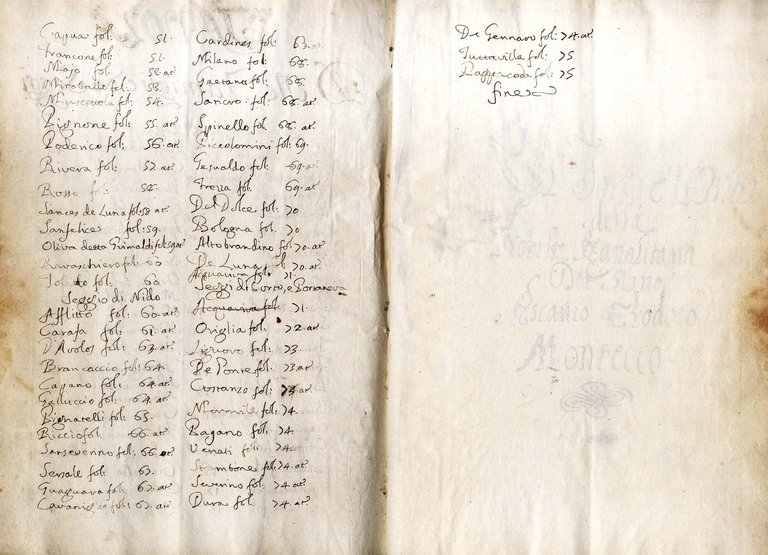 Capua fol: 51.
Francone fol: 51.
Majo fol: 52. at.
Miroballo fol: 53.
Muscettola fol: 54.
Pignone fol: 55. at.
Poderico fol: 56. at.
Rivera fol: 57. at.
Rosso fol: 58.
Sances de Luna fol: 58 at.
Sanfelices fol: 59.
Oliva detto Grimaldi fol: 59 at.
Ravaschiero fol: 60
fol: 60
Seggio di Nido
Afflitto fol: 60. at.
Carafa fol: 61. at.
D'Avolos fol: 63. at.
Brancaccio fol: 64.
Capano fol: 64 at.
Galluccio fol: 64. at.
Pignatelli fol: 65.
Riccio fol: 66. at.
Sanseverino fol: 66. at.
Sersale fol: 67.
Guaguara fol: 67. at.
Cavaniglio fol: 67. at.
Cardines fol: 63. at.
Milano fol: 68.
Gaetano fol: 68.
Sancro fol: 68. at.
Spinello fol. 68. at.
Piccolomini fol: 69.
Gesualdo fol: 69. at.
Frezza fol: 69. at.
Del Dolce fol: 70
Bologna fol. 70
Altobrandino fol 70. at.
De Luna fol 70. at.
Acquaviva fol: 71.
Seggi di Porto, e Portanova
Acquaviva fol: 71
Origlia fol: 72. at.
Liguoro fol: 73.
De Ponte fol: 73 at.
Costanzo fol: 73 at.
Mormile fol: 74.
Pagano fol: 74.
Venati fol: 74.
Strambone fol: 74. at.
Severino fol: 74. at.
Dura fol: 74. at.
De Gennaro fol: 74. at.
Tuttavilla fol: 75
Pappacoda fol: 75
fine